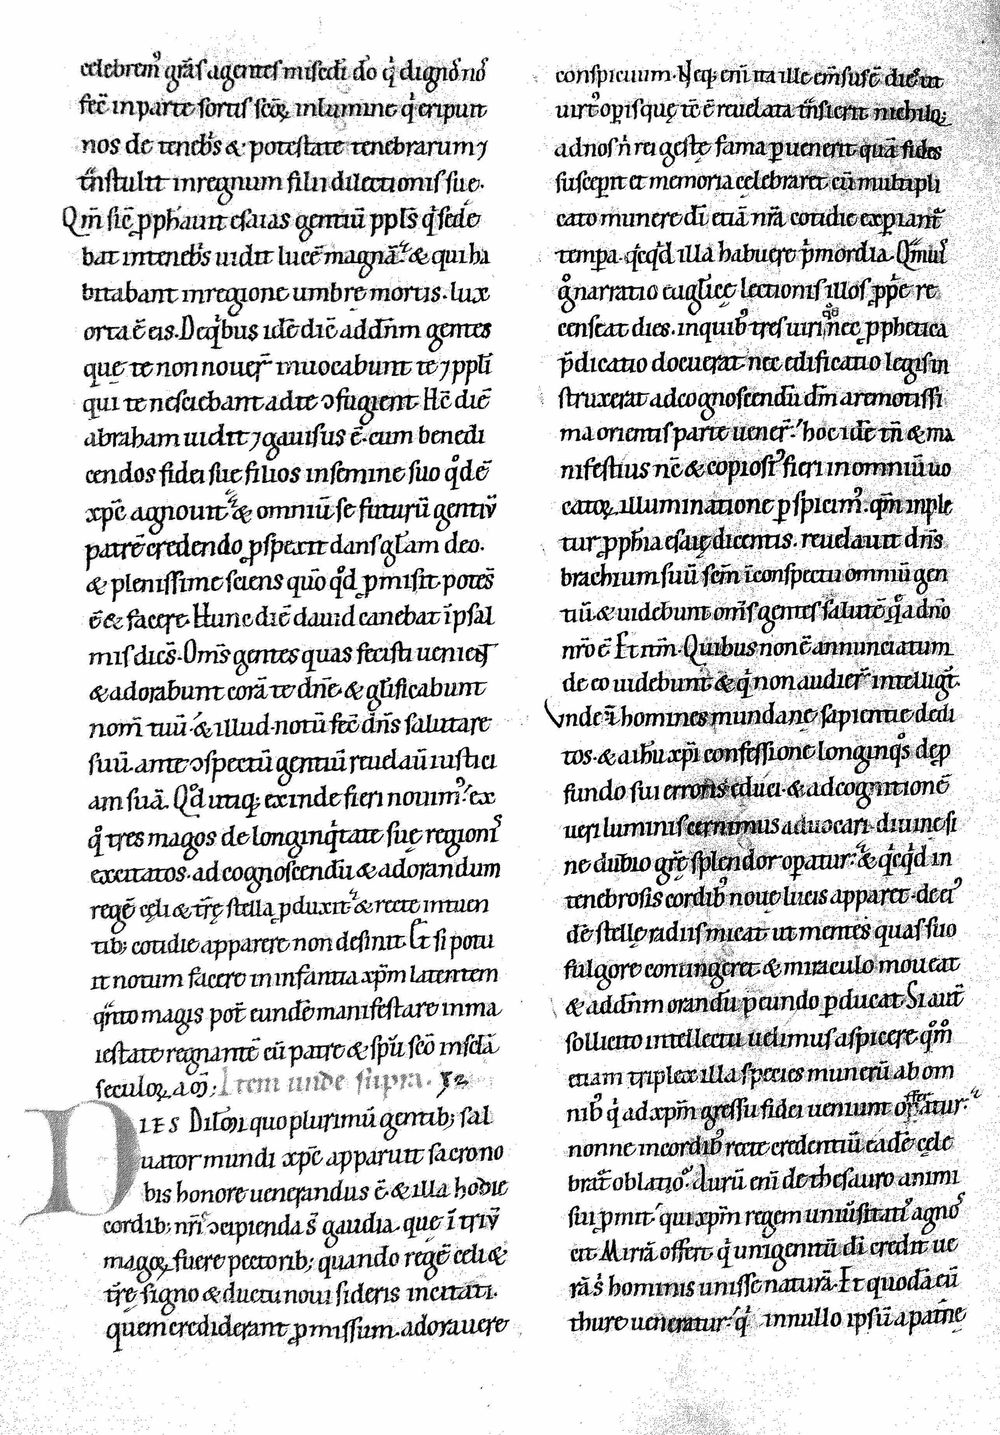 celebrem᷒ gr̄as agentes mis̄edi d̄o q̇ dignōs nō
fec̄ in parte sortis sc̄oꝝ in lumine q̇ eripuit
nos de teneb̄s & potestate tenebrarum ⁊
t̄nstulit in regnum filii dilectionis sue.
Qm̄ sic̄ ꝓphauit esaias gentiū ppl̄s q̇ sede
bat in teneb̄s uidit lucē magnā. & qui ha
bitabant in regione umbre mortis. lux
orta ē eis. De q̇bus idē diē ad dn̄m gentes
que te non nouer̄ inuocabunt te ⁊ ppl̄i
qui te nesciebant ad te ↄfugient Hc̄ diē
abraham uidit ⁊ gauisus ē. cum benedi
cendos fidei sue filios in semine suo qd̊ ē
xp̄c agnouit & omniū se futurū gentiū
patrē credendo ꝓspexit dans gl̄am deo.
& plenissime sciens quō qd̊ ꝓmisit potēs
ē & facere Hunc diē dauid canebat ī psal
mis dic̄s. Om̄s gentes quas fecisti uenient
& adorabunt corā te dn̄e & gl̄ificabunt
nom̄ tuū. & illud. notū fec̄ dn̄s salutare
suū. ante ↄspectū gentiū reuelauī iustici
am suā. Qd̊ utiq; exinde fieri nouim᷒ ex
q̊ tres magos de longinq̇tate sue regionis
excitatos. ad cognoscendū & adorandum
regē celi & tr̄e stella ꝓduxit & recte intuen
tib; cotidie apparere non desinit Et si potu
it notum facere in infantia xp̄m latentem
qn̄to magis pot̄ eundē manifestare in ma
iestate regnantē cū patre & spū sc̄o in sc̄la
seculoꝝ am̄; Item unde supra. xx
DIES Dilc̄mi quo plurimū gentib; sal
uator mundi xp̄c apparuit sacro no
bis honore uenerandus ē. & illa hodie
cordib; nr̄i ↄcipienda s̄ gaudia. que ī triū
magoꝝ fuere pectorib; quando regē celi &
tr̄e signo & ductu noui sideris incitati.
quem crediderant ꝓmissum. adorauere
conspicuum. Neq; eni̅ ita ille em̄sus ē dies ut
uirt᷒ opis que tc̄ ē reuelata t̄nsierit nichilq;
ad nos n̄ rei geste fama ꝑuenerit quā fides
susceꝑit et memoria celebraret cū multipli
cato munere dī etiā nr̄a cotidie expiant᷒
tempa. q̇cq̇d illa habuere p̄mordia. Qm̄uis
g̊ narratio eug̅lice lectionis illos ꝓp̄e re
censeat dies. in quib᷒ tres uiri q̊s nec ꝓphetica
p̄dicatio docuerat. nec edificatio legis in
struxerat ad cognoscendū dm̄ a remotissi
ma orientis parte uener̄. hoc idē tn̄ & ma
nifestius nc̄ & copiosi᷒ fieri in omniū uo
catoꝝ illuminatione ꝑspicim᷒. qm̄ inple
tur ꝓph̄ia esaie dicentis. reuelauit dn̄s
brachium suū scm̄ ī conspectu omniū gen
tiū & uidebunt om̄s gentes salutē q̊ a dn̄o
nr̄o ē Et itm̄. Quibus non ē annunciatum
de eo uidebunt & q̇ non audier̄ intellig̅t.
Unde c̄ homines mundane sapientie dedi
tos. & a ih̄u xp̄i confessione longinq̊s de ꝓ
fundo sui erroris educi. & ad cognitionē
ueri luminis cernimus aduocari. diuine si
ne dubio gr̄e splendor opatur. & q̇cq̇d in
tenebrosis cordib᷒ noue lucis apparet. de ei᷒
dē stelle radiis micat. ut mentes quas suo
fulgore contingeret & miraculo moueat
& ad dn̄m orandū p̄eundo ꝑducat. Si aut̄
sollicito intellectu uelimus aspicere qm̊o
etiam triplex illa species munerū ab om
nib᷒ q̇ ad xp̄m gressu fidei ueniunt offeratur.
nonne in cordib᷒ recte credentiū eadē cele
brat̄ oblatio. Aurū eni̅ de thesauro animi
sui ꝓmit. qui xp̄m regem uniūsitatis agnos
cit Mirrā offert q̇ unigenitū di credit ue
rā s̄ hominis unisse naturā. Et quodā eū
thure ueneratur. q̇ in nullo ipsū a patne